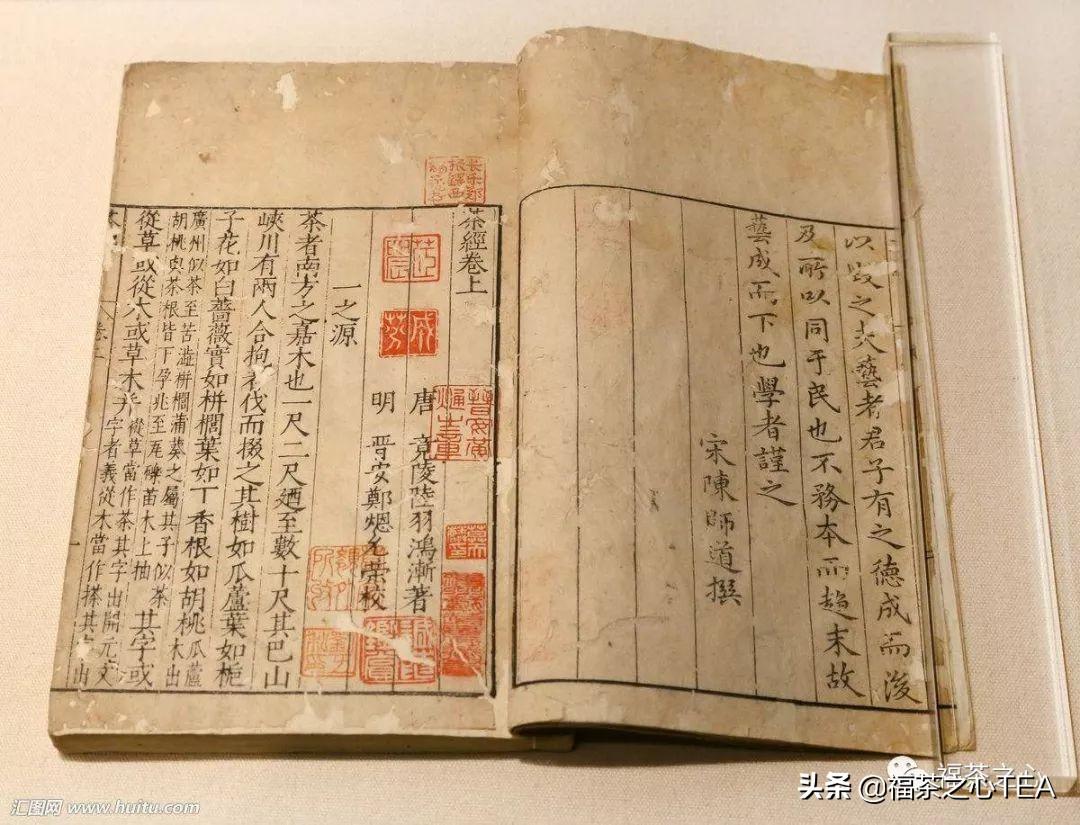 以毀之夫藝者君子有之德成而後
及所以同于民也不務本而趨末故
藝成而下也學者謹之
宋陳師道撰
茶經卷上
唐 竟陵陸羽鴻漸著
明 晉安鄭熜允榮校
一之源
茶者南方之嘉木也一尺二尺廼至數十尺其巴山
峽川有兩人合抱者伐而掇之其樹如瓜蘆葉如梔
子花如白薔薇實如栟櫚葉如丁香根如胡桃瓜蘆木出
廣州似茶至苦澁栟櫚蒲葵之屬其子似茶
胡桃與茶根皆下孕兆至瓦礫苗木上抽 其字或
從草或從木或草木并從草當作茶其字出開元文
字者義從木當作搽其字出
福茶之心
头条 @福茶之心TEA
汇图网 www.huitu.com